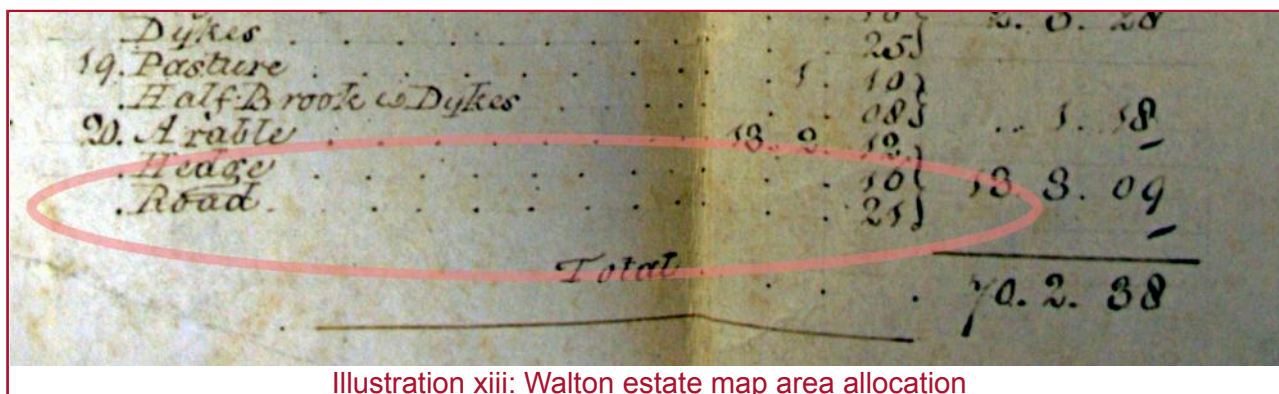 Dykes . . . . . . . . . . 25
19. Pasture . . . . . . . . 1. 10
. Half Brook & Dykes . . . . 08 .. 1. 18
20. Arable . . . . . . . 13. 2. 12
. Hedge . . . . . . . . . 10 13. 3. 09
. Road . . . . . . . . . 21
Total . . . 70. 2. 38
Illustration xiii: Walton estate map area allocation